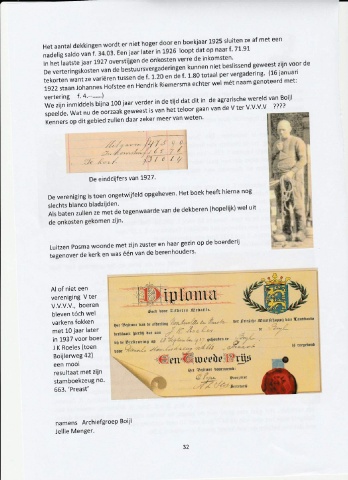 Het aantal dekkingen wordt er niet hoger door en boekjaar 1925 sluiten ze af met een
nadelig saldo van f. 34.03. Een jaar later in 1926 loopt dat op naar f. 71.91
In het laatste jaar 1927 overstijgen de onkosten verre de inkomsten.
De verteringskosten van de bestuursvergaderingen kunnen niet beslissend geweest zijn voor de
tekorten want ze variëren tussen de f. 1.20 en de f. 1.80 totaal per vergadering. (16 januari
1922 staan Johannes Hofstee en Hendrik Riemersma echter wel mét naam genoteerd met:
vertering f. 4,-----)
We zijn inmiddels bijna 100 jaar verder in de tijd dat dit in de agrarische wereld van Boijl
speelde. Wat nu de oorzaak geweest is van het teloor gaan van de V ter V.V.V.V ????
Kenners op dit gebied zullen daar zeker meer van weten.
De eindcijfers van 1927.
De vereniging is toen ongetwijfeld opgeheven. Het boek heeft hierna nog
slechts blanco bladzijden.
Als baten zullen ze met de tegenwaarde van de dekberen (hopelijk) wel uit
de onkosten gekomen zijn.
Luitzen Posma woonde met zijn zuster en haar gezin op de boerderij
tegenover de kerk en was één van de berenhouders.
Al of niet een
vereniging V ter
V.V.V.V., boeren
bleven tóch wel
varkens fokken
met 10 jaar later
in 1937 voor boer
J K Roeles (toen
Boijlerweg 42)
een mooi
resultaat met zijn
stamboekzeug no.
663. 'Preast'
Diploma
Een Tweede Prijs
namens Archiefgroep Boijl
Jellie Menger.
32